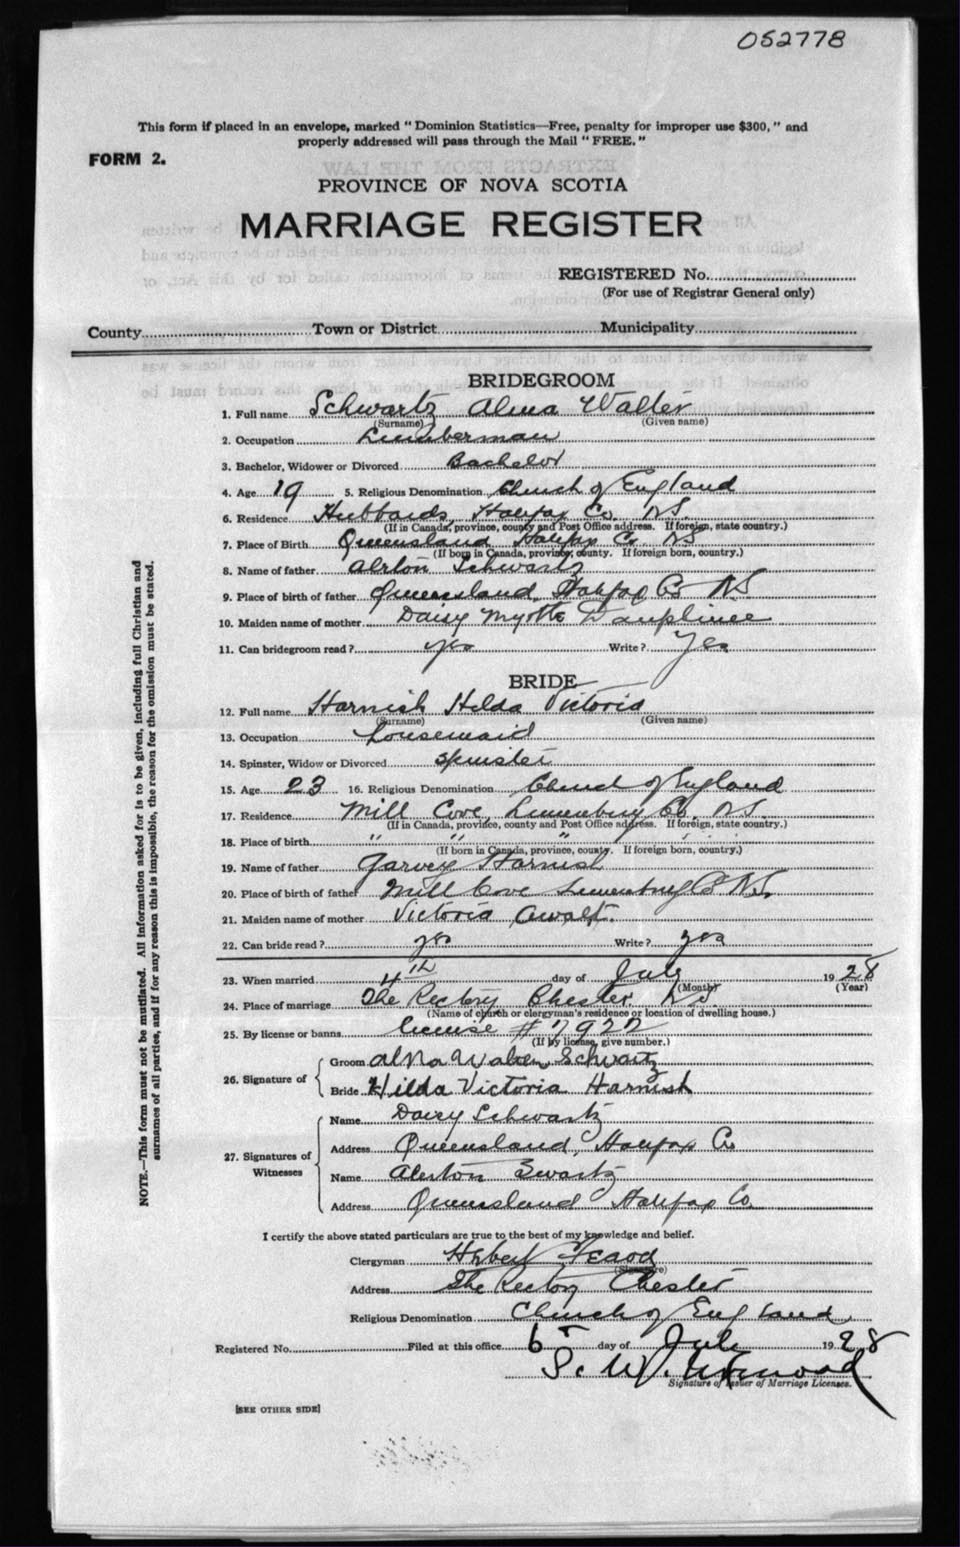 052778
This form if placed in an envelope, marked " Dominion Statistics—Free, penalty for improper use $300, " and
properly addressed will pass through the Mail " FREE. "
FORM 2.
PROVINCE OF NOVA SCOTIA
MARRIAGE REGISTER
REGISTERED No.
(For use of Registrar General only)
County Town or District Municipality
BRIDEGROOM
1. Full name Schwartz Alma Walter
(Surname) (Given name)
2. Occupation Lumberman
3. Bachelor, Widower or Divorced Bachelor
4. Age 19 5. Religious Denomination Church of England
6. Residence Hubbards, Halifax Co. N.S.
(If in Canada, province, county and Post Office address. If foreign, state country.)
7. Place of Birth Queensland Halifax Co NS
(If born in Canada, province, county. If foreign born, country.)
8. Name of father Alrton Schwartz
9. Place of birth of father Queensland, Halifax Co N.S.
10. Maiden name of mother Daisy Myrtle Dauphinee
11. Can bridegroom read ? yes Write ? Yes
BRIDE
12. Full name Harnish Hilda Victoria
(Surname) (Given name)
13. Occupation housemaid
14. Spinster, Widow or Divorced spinster
15. Age 23 16. Religious Denomination Church of England
17. Residence Mill Cove, Lunenburg Co. N.S.
(If in Canada, province, county and Post Office address. If foreign, state country.)
18. Place of birth " " " "
(If born in Canada, province, county. If foreign born, country.)
19. Name of father Garvey Harnish
20. Place of birth of father Mill Cove Lunenburg Co N.S.
21. Maiden name of mother Victoria Awalt.
22. Can bride read ? yes Write ? yes
23. When married 4th day of July 1928
(Month) (Year)
24. Place of marriage The Rectory Chester N.S.
(Name of church or clergyman's residence or location of dwelling house.)
25. By license or banns license # 7922
(If by license, give number.)
26. Signature of
Groom Alma Walter Schwartz
Bride Hilda Victoria Harnish
27. Signatures of Witnesses
Name Daisy Schwartz
Address Queensland, Halifax Co
Name Alerton Swartz
Address Queensland Halifax Co.
I certify the above stated particulars are true to the best of my knowledge and belief.
Clergyman
(Signature)
Address The Rectory Chester
Religious Denomination Church of England
Registered No. Filed at this office 6 day of July 1928
S. W.
Signature of Issuer of Marriage Licenses.
[SEE OTHER SIDE]
NOTE.—This form must not be mutilated. All information asked for is to be given, including full Christian and
surnames of all parties, and if for any reason this is impossible, the reason for the omission must be stated.